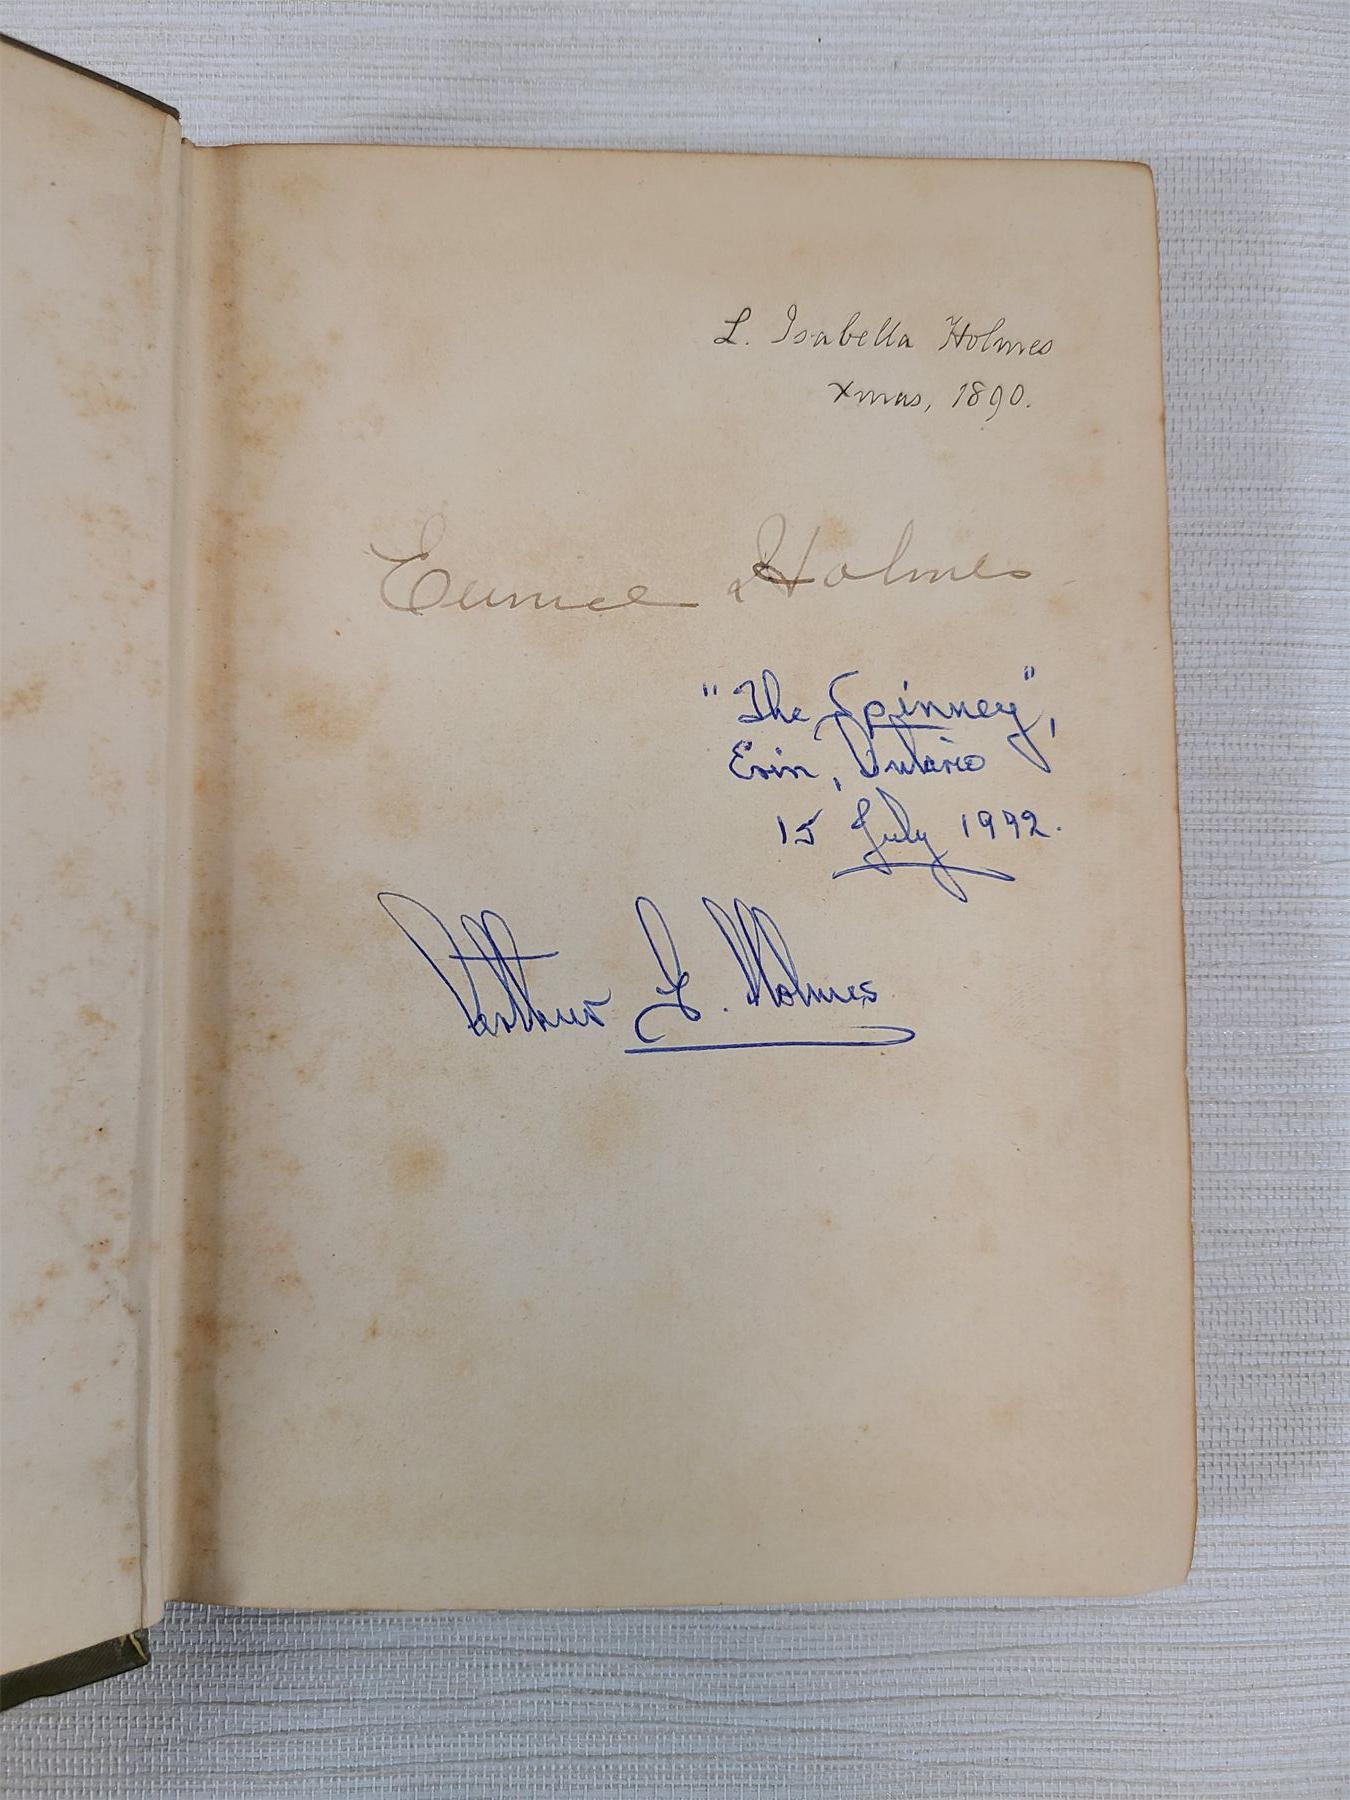 L. Isabella Holmes
Xmas, 1890.
Eunice Holmes
"The Spinney",
Erin, Ontario
15 July 1992.
Arthur G. Holmes